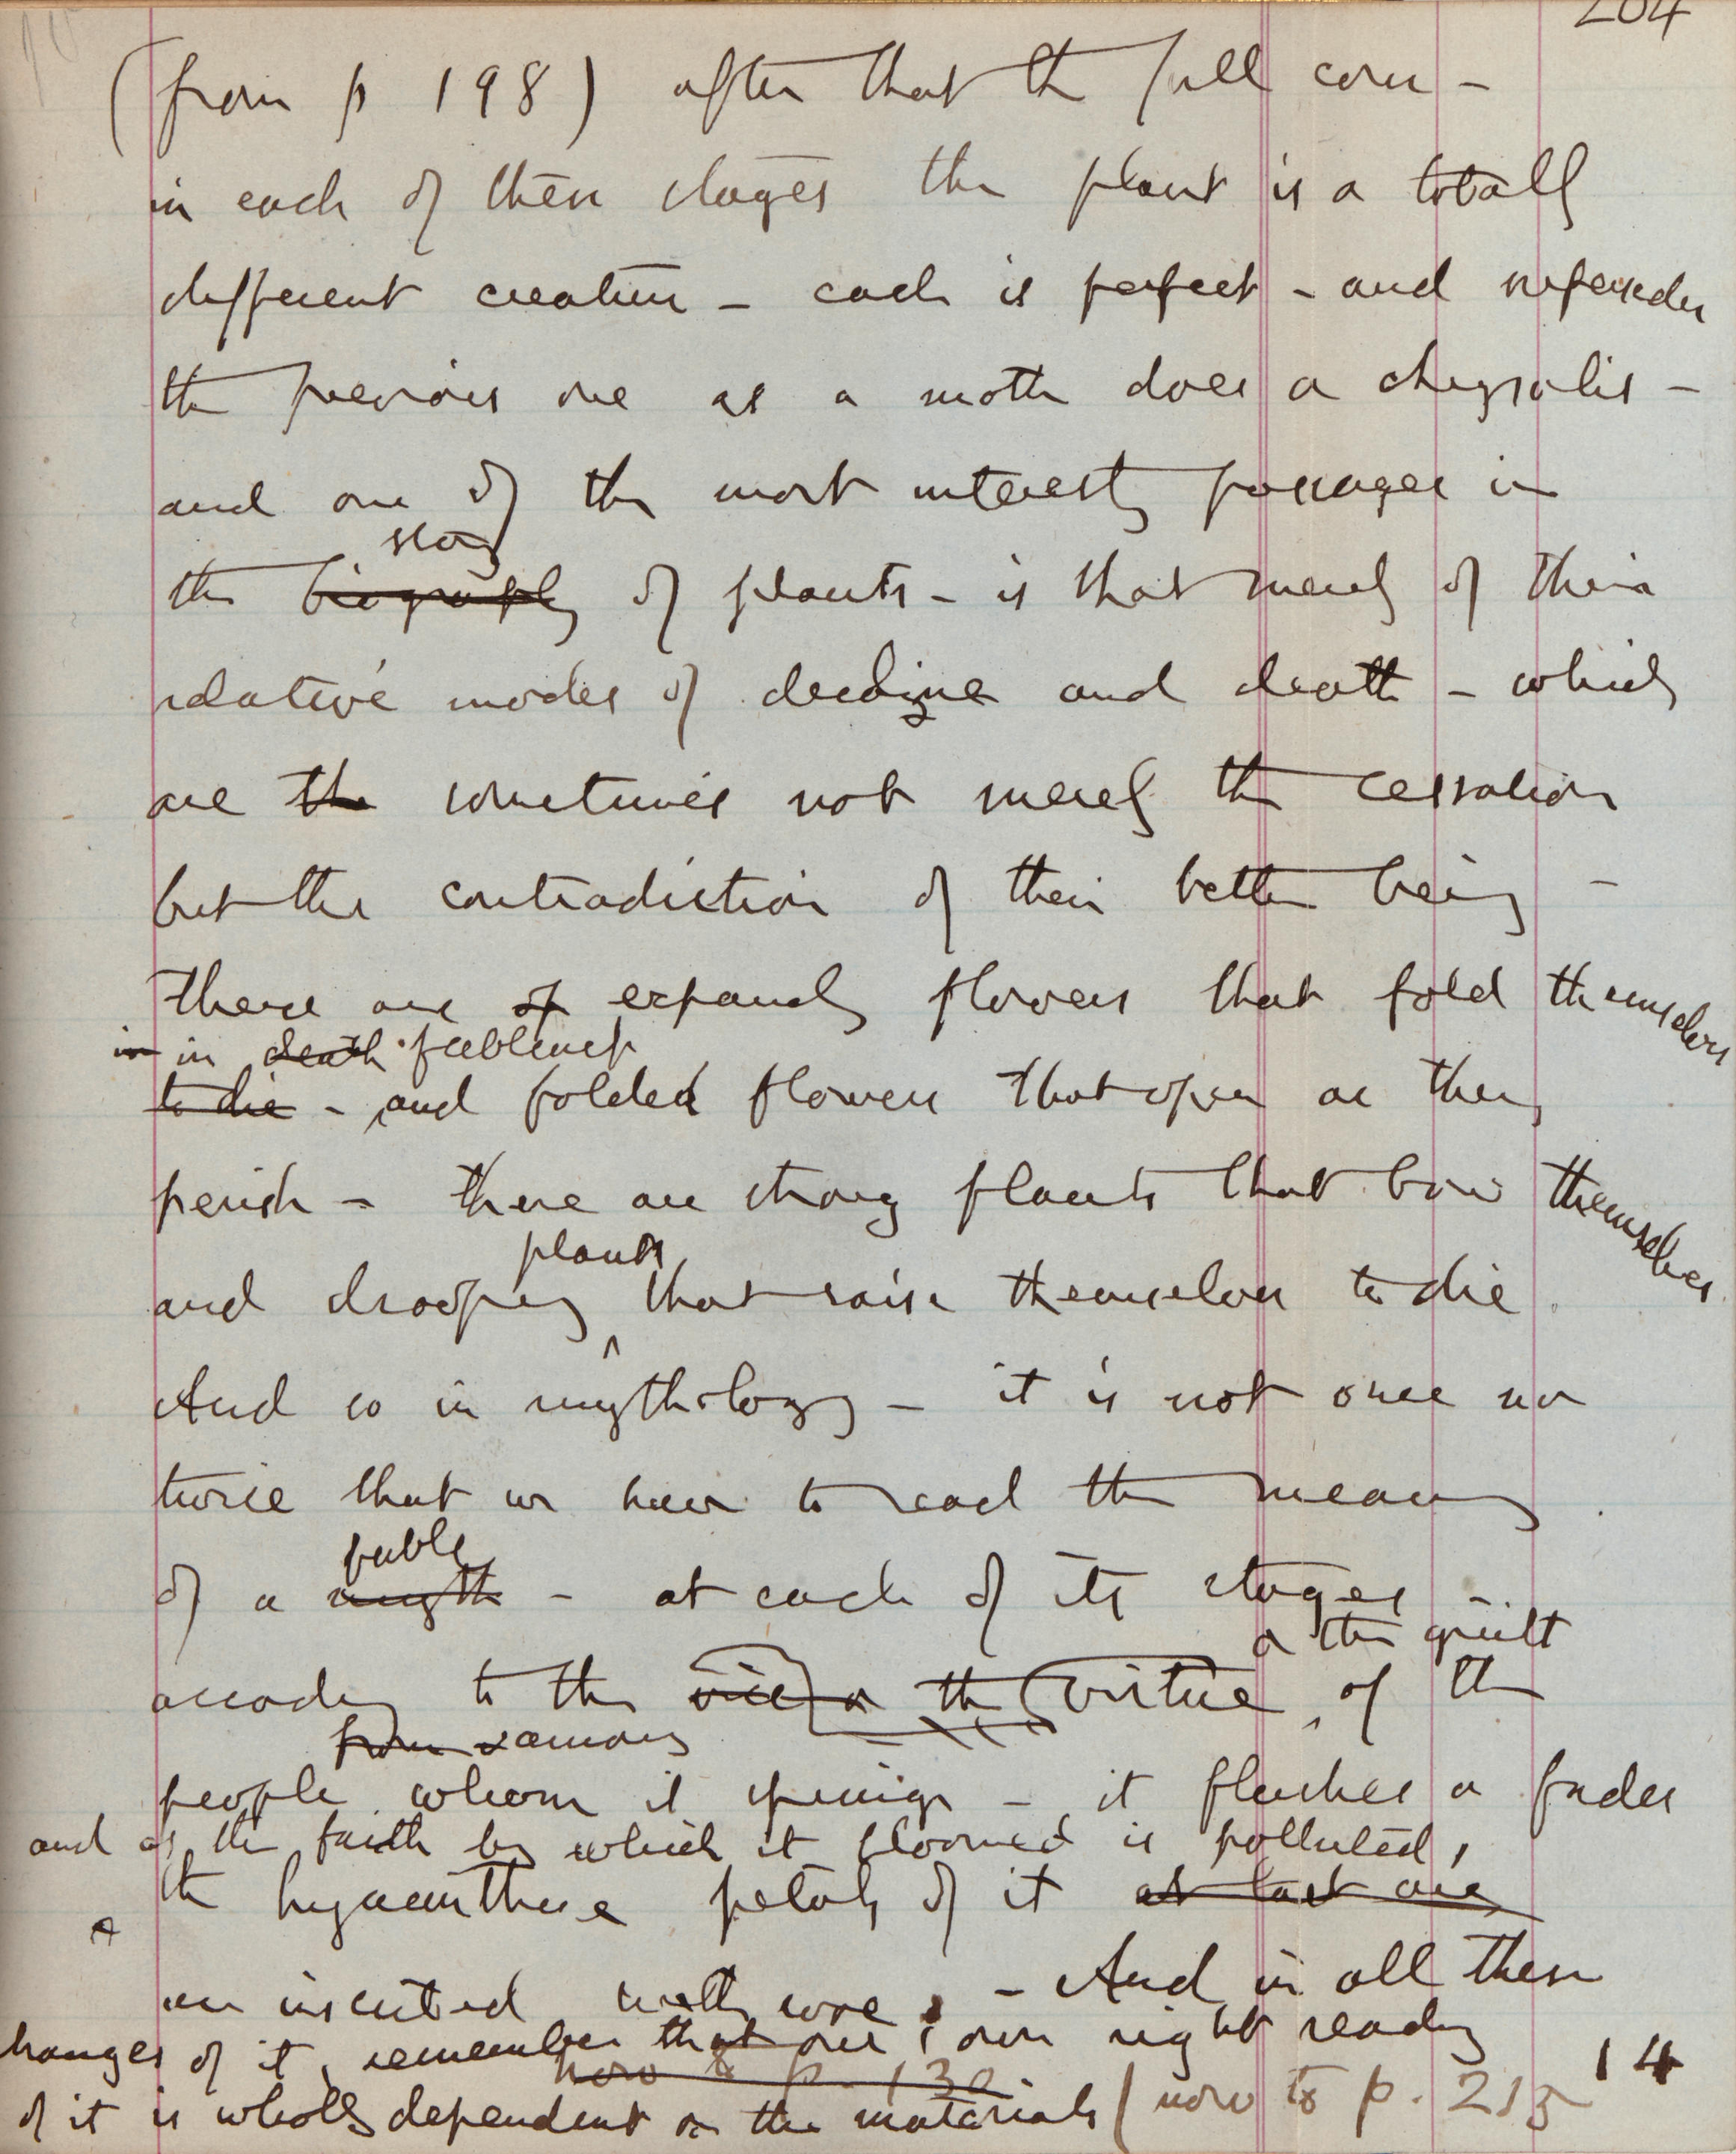 204
(from p 198) after that the full corn -
in each of these stages the plant is a totally
different creature - each is perfect - and supersedes
the previous one as a moth does a chrysalis -
and one of the most interesting passages in
story
the biography of plants - is that merely of their
relative modes of decline and death - which
are the sometimes not merely the cessation
but the contradiction of their better being -
there are of expanding flowers that fold themselves
in in death feebleness
to die - and folded flowers that open as they
perish - there are strong plants that bow themselves
plants
and drooping that raise themselves to die
And so in mythology - it is not once nor
twice that we have to read the meaning
fable
of a myth - at each of its stages -
or the guilt
according to the vice or the virtue, of the
from among
people whom it springs - it flushes or fades
and as the faith by which it bloomed is polluted,
the hyacinthine petals of it at last are
are inscribed with woe. - And in all these
changes of it, remember that our own right reading
now to p. 130
of it is wholly dependent on the materials (now to p. 215
14